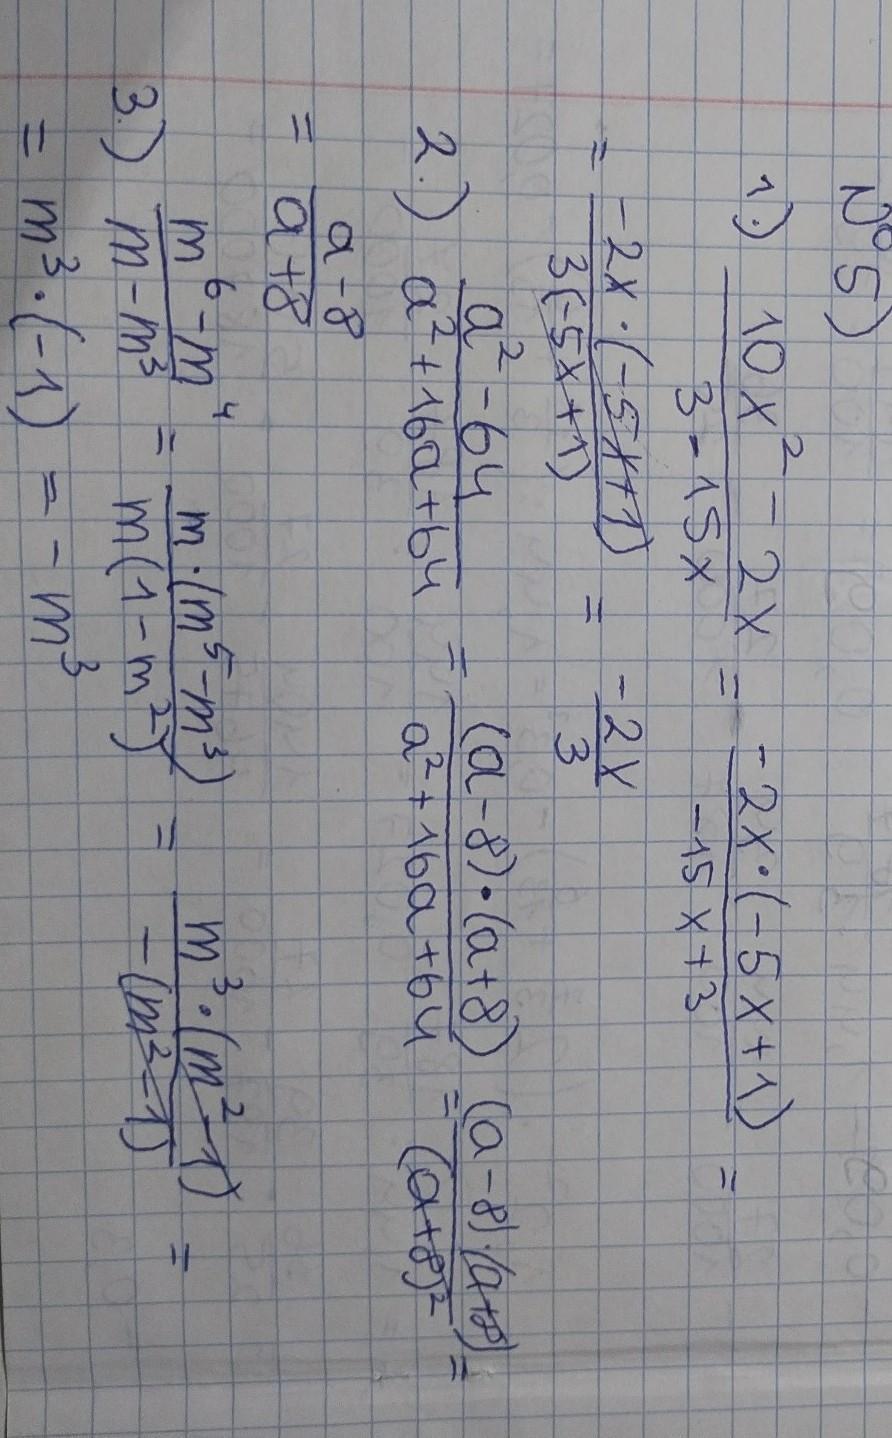 №5)
1.) (10x² - 2x)/(3 - 15x) = (-2x·(-5x+1))/(-15x+3) =
= (-2x·(-5x+1))/(3(-5x+1)) = (-2x)/3
2.) (a² - 64)/(a² + 16a + 64) = ((a-8)·(a+8))/(a² + 16a + 64) = ((a-8)·(a+8))/((a+8)²) =
= (a-8)/(a+8)
3.) (m⁶ - m⁴)/(m - m³) = (m·(m⁵ - m³))/(m(1 - m²)) = (m³·(m² - 1))/(-(m² - 1)) =
= m³·(-1) = -m³